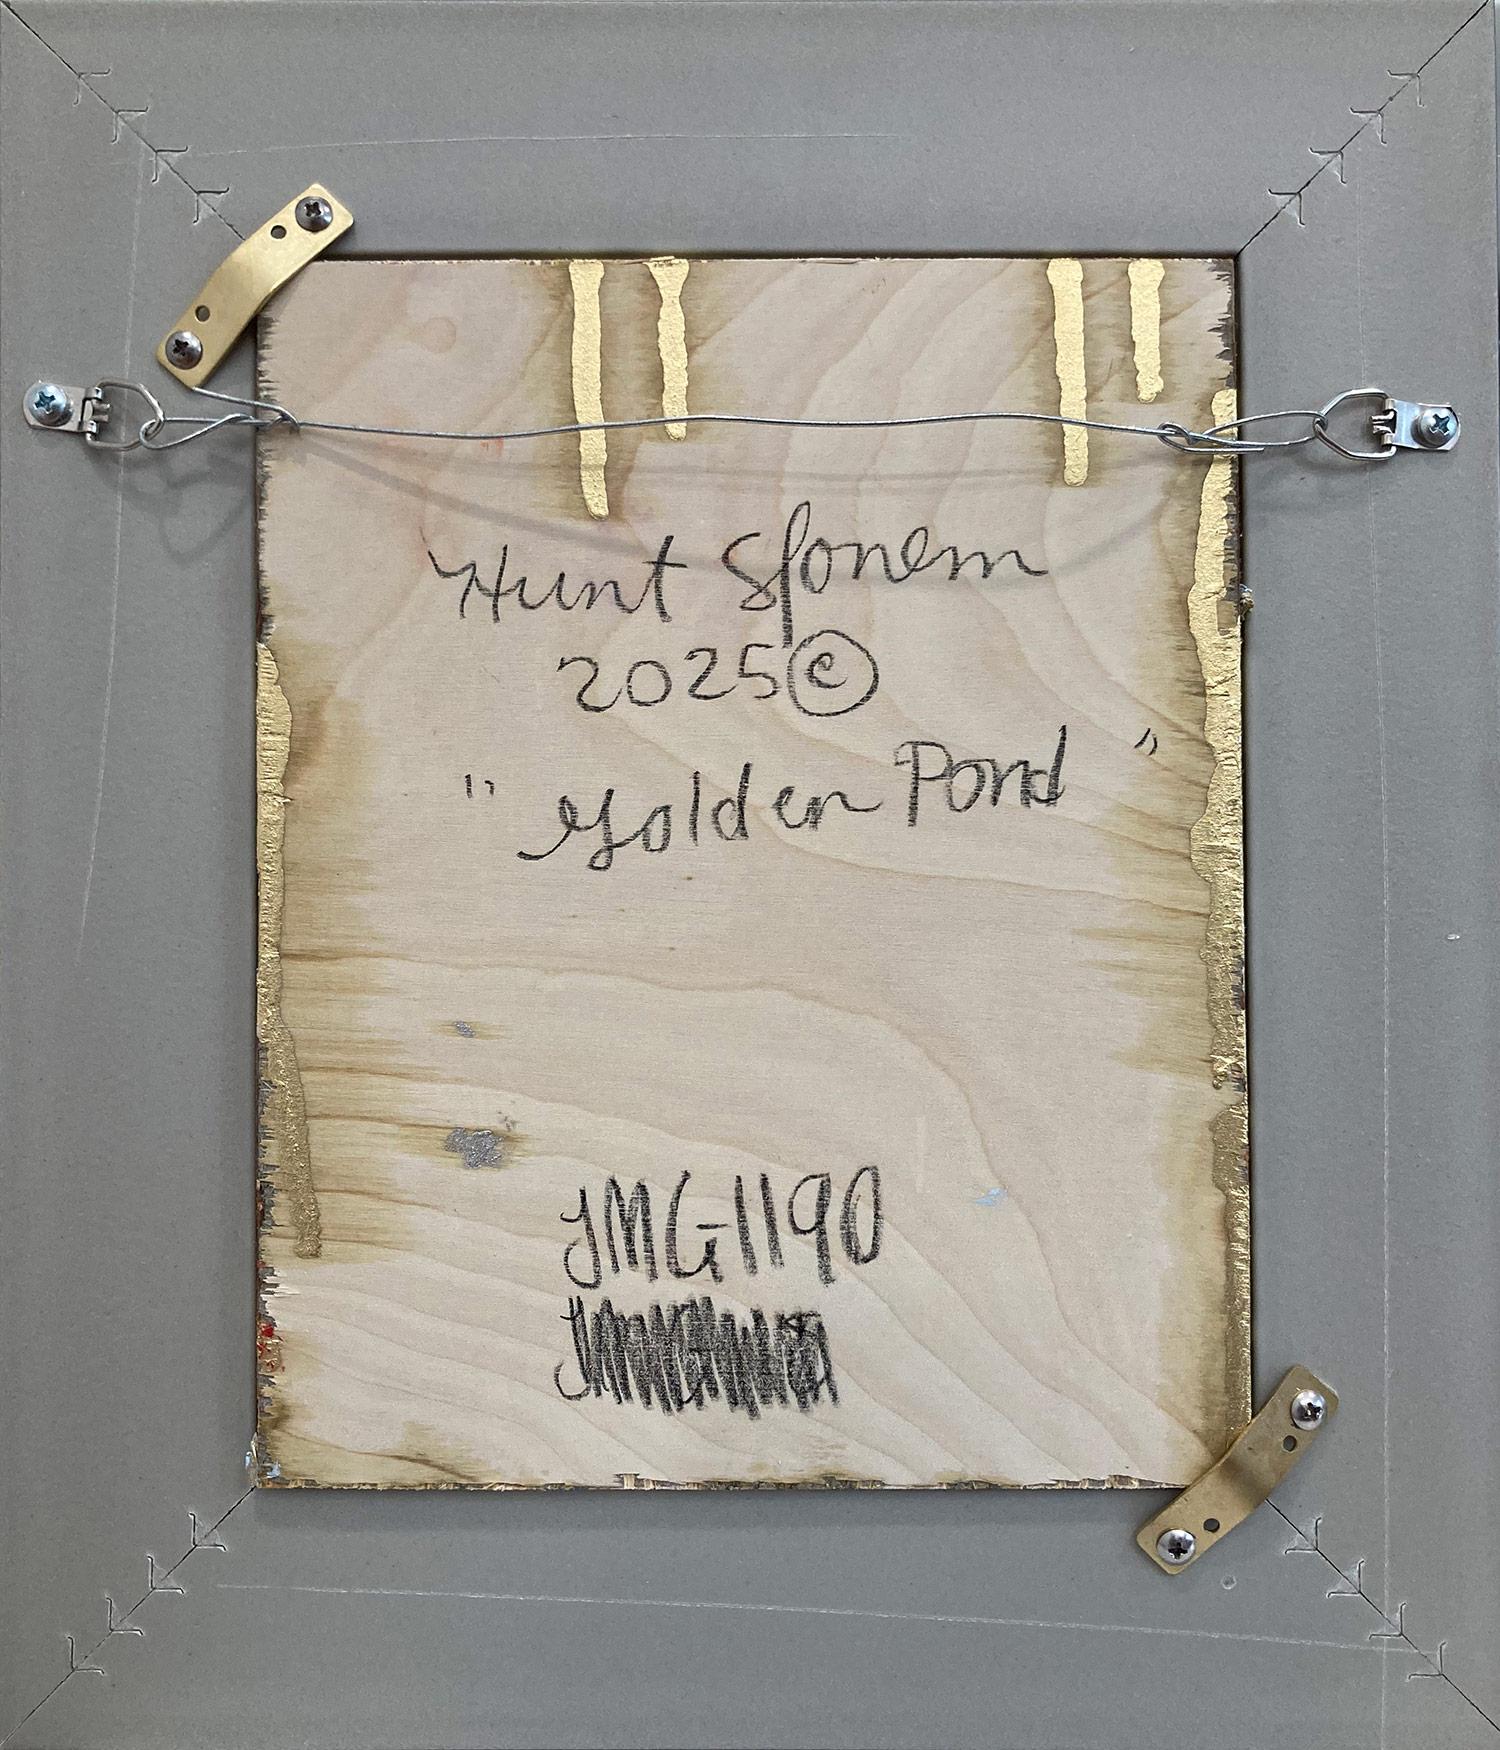 Hunt Slonem
2025 ©
"Golden Pond"
JMG-1190